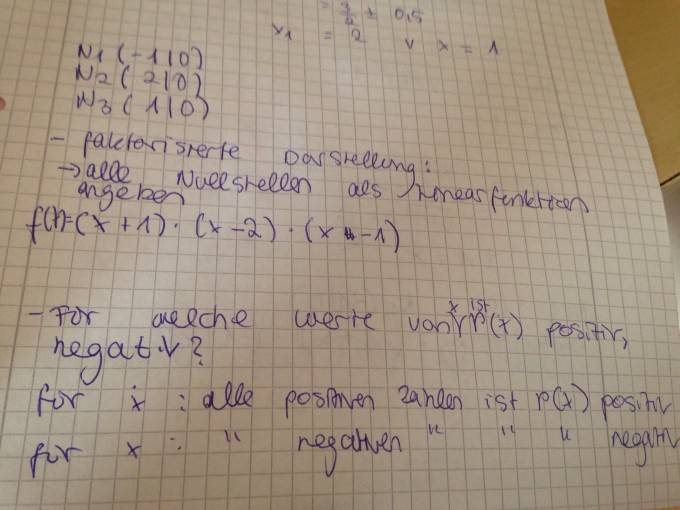 = 3/2 ± 0,5
x1 = 2 v x = 1
N1 (-1|0)
N2 ( 2|0)
N3 ( 1|0)
- faktorisierte Darstellung:
→ alle Nullstellen als Linearfunktion
angeben
f(x)=(x+1)·(x-2)·(x-1)
- Für welche werte von x ist p(x) positiv,
negativ?
für x : alle positiven zahlen ist p(x) positiv
für x : " negativen " " " negativ